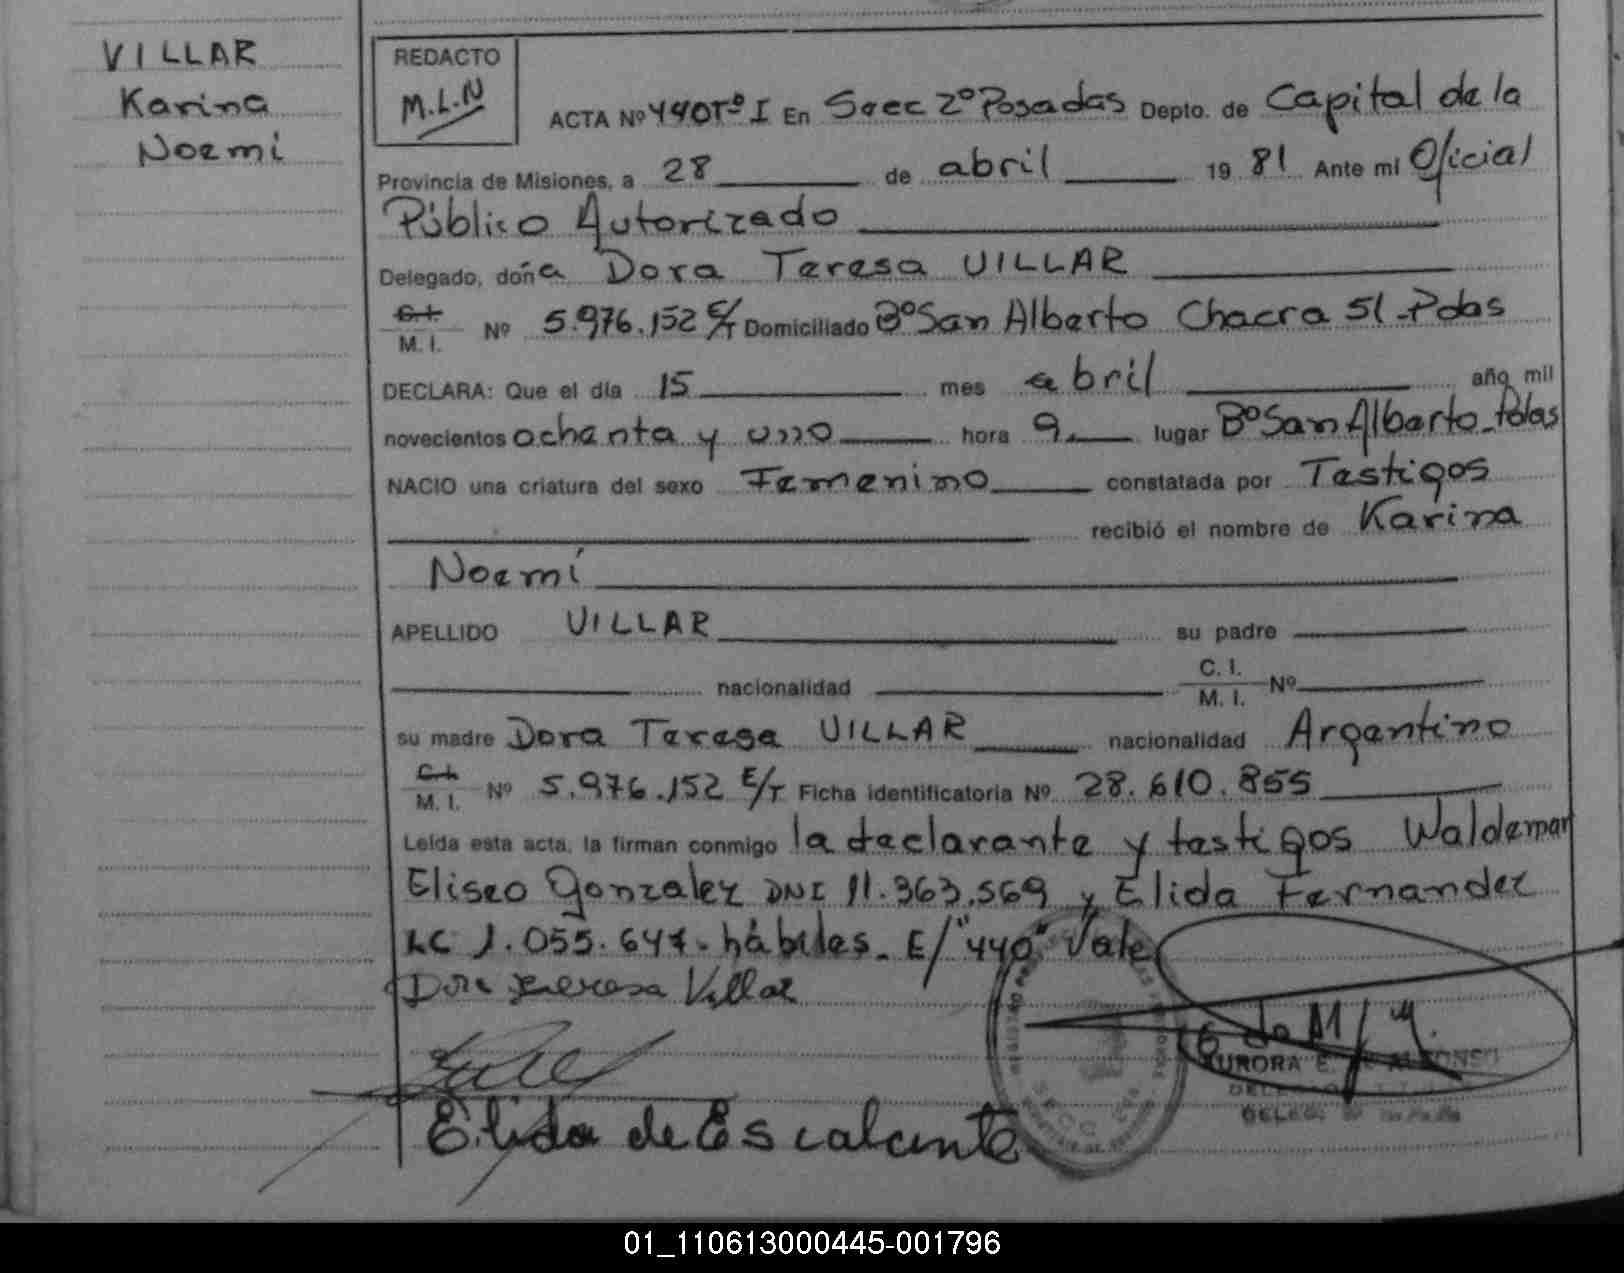 VILLAR
Karina
Noemí
REDACTO
M.L.N
ACTA Nº 440 Tº I En Secc 2º Posadas Depto. de Capital de la
Provincia de Misiones, a 28 de abril 19 81 Ante mi Oficial
Público Autorizado
Delegado, doña Dora Teresa VILLAR
C.I.
M. I. Nº 5.976.152 E/T Domiciliado Bº San Alberto Chacra 51 - Pdas
DECLARA: Que el día 15 mes abril año mil
novecientos ochenta y uno hora 9. lugar Bº San Alberto - Pdas
NACIO una criatura del sexo Femenino constatada por Testigos
recibió el nombre de Karina
Noemí
APELLIDO VILLAR su padre
nacionalidad C. I.
M. I. Nº
su madre Dora Teresa VILLAR nacionalidad Argentino
C.I.
M. I. Nº 5.976.152 E/T Ficha identificatoria Nº 28.610.855
Leída esta acta, la firman conmigo la declarante y testigos Waldemar
Eliseo Gonzalez DNI 11.363.569 y Elida Fernandez
LC 1.055.647. hábiles. E/"440" Vale
Dora Teresa Villar
Elida de Escalante
AURORA E.
01_110613000445-001796